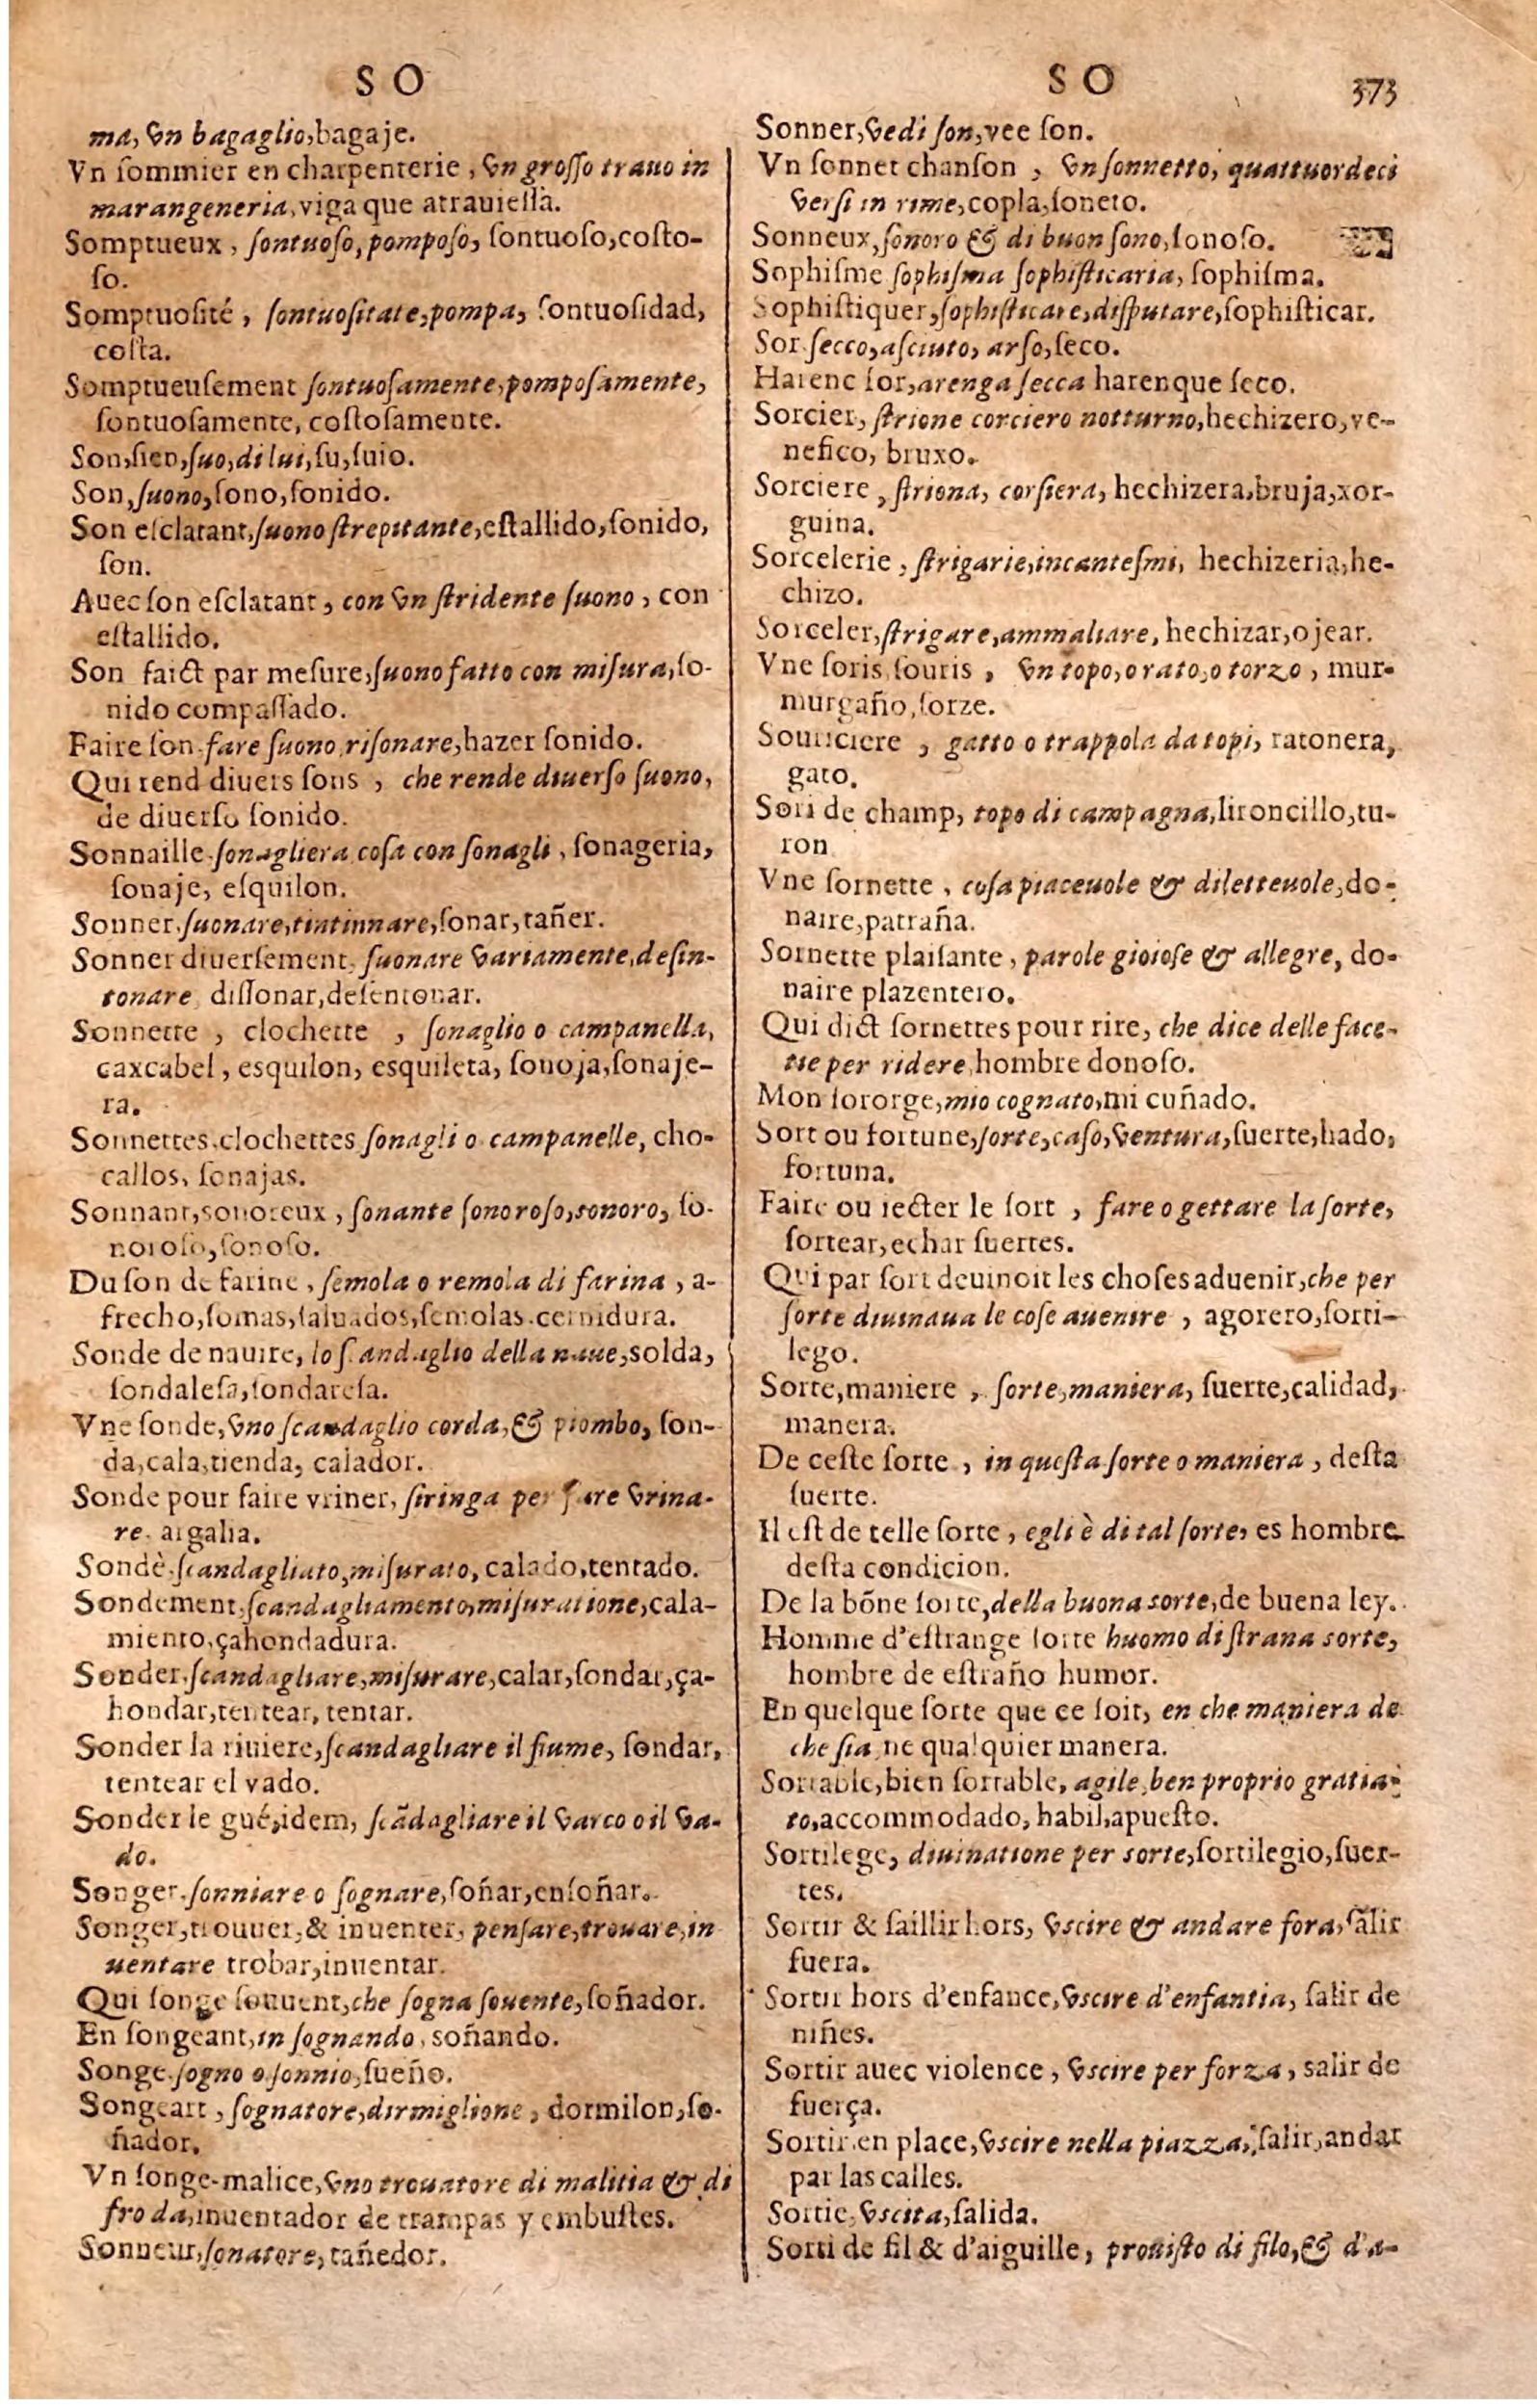 S O
ma, vn bagaglio, bagaje.
Vn ſommier en charpenterie, vn groſſo trauo in
marangeneria, viga que atrauieſſa.
Somptueux, ſontuoſo, pompoſo, ſontuoſo, coſto-
ſo.
Somptuoſité, ſontuoſitate, pompa, ſontuoſidad,
coſta.
Somptueuſement ſontuoſamente, pompoſamente,
ſontuoſamente, coſtoſamente.
Son, ſien, ſuo, di lui, ſu, ſuio.
Son, ſuono, ſono, ſonido.
Son eſclatant, ſuono ſtrepitante, eſtallido, ſonido,
ſon.
Auec ſon eſclatant, con vn ſtridente ſuono, con
eſtallido.
Son faict par meſure, ſuono fatto con miſura, ſo-
nido compaſſado.
Faire ſon. fare ſuono riſonare, hazer ſonido.
Qui rend diuers ſons, che rende diuerſo ſuono,
de diuerſo ſonido.
Sonnaille. ſonagliera coſa con ſonagli, ſonageria,
ſonaje, eſquilon.
Sonner. ſuonare, tintinnare, ſonar, tañer.
Sonner diuerſement, ſuonare variamente, deſin-
tonare, diſſonar, deſentonar.
Sonnette, clochette, ſonaglio o campanella,
caxcabel, esquilon, esquileta, ſonoja, ſonaje-
ra.
Sonnettes. clochettes ſonagli o campanelle, cho-
callos, ſonajas.
Sonnant, sonoreux, ſonante ſonoroſo, sonoro, ſo-
noroſo, ſonoſo.
Du ſon de farine, ſemola o remola di farina, a-
frecho, ſomas, ſaluados, ſemolas. cernidura.
Sonde de nauire, lo ſcandaglio della naue, solda,
ſondaleſa, ſondareſa.
Vne ſonde, vno ſcandaglio corda, & piombo, ſon-
da, cala, tienda, calador.
Sonde pour faire vriner, ſiringa per fare vrina-
re. argalia.
Sondè. ſcandagliato, miſurato, calado, tentado.
Sondement, ſcandagliamento, miſuratione, cala-
miento, çahondadura.
Sonder. ſcandagliare, miſurare, calar, ſondar, ça-
hondar, tentear, tentar.
Sonder la riuiere, ſcandagliare il fiume, ſondar,
tentear el vado.
Sonder le gué, idem, ſcãdagliare il varco o il va-
do.
Songer. ſonniare o ſognare, ſoñar, enſoñar.
Songer, trouuer, & inuenter, penſare, trouare, in
uentare trobar, inuentar.
Qui ſonge ſouuent, che ſogna ſouente, ſoñador.
En ſongeant, in ſognando, soñando.
Songe. ſogno o ſonnio, ſueño.
Songeart, ſognatore, dirmiglione, dormilon, ſo-
ñador.
Vn ſonge-malice, vno trouatore di malitia & di
froda, inuentador de trampas y embuſtes.
Sonneur, ſonatore, tañedor.
S O
373
Sonner, vedi ſon, vee ſon.
Vn ſonnet chanſon, vn ſonnetto, quattuordeci
verſi in rime, copla, ſoneto.
Sonneux, ſonoro & di buon ſono, ſonoſo.
Sophiſme ſophiſma ſophiſticaria, ſophiſma.
Sophiſtiquer, ſophiſticare, diſputare, ſophiſticar.
Sor. ſecco, aſciuto, arſo, ſeco.
Harenc ſor, arenga ſecca harenque ſeco.
Sorcier, ſtrione corciero notturno, hechizero, ve-
nefico, bruxo.
Sorciere, ſtriona, corſiera, hechizera, bruja, xor-
guina.
Sorcelerie, ſtrigarie, incanteſmi, hechizeria, he-
chizo.
Sorceler, ſtrigare, ammaliare, hechizar, ojear.
Vne ſoris, ſouris, vn topo, o rato, o torzo, mur-
murgaño, ſorze.
Souriciere, gatto o trappola da topi, ratonera,
gato.
Sori de champ, topo di campagna, lironcillo, tu-
ron
Vne ſornette, coſa piaceuole & diletteuole, do-
naire, patraña.
Sornette plaiſante, parole gioioſe & allegre, do-
naire plazentero.
Qui dict ſornettes pour rire, che dice delle face-
tie per ridere, hombre donoſo.
Mon ſororge, mio cognato, mi cuñado.
Sort ou fortune, ſorte, caſo, ventura, ſuerte, hado,
fortuna.
Faire ou iecter le ſort, fare o gettare la ſorte,
ſortear, echar ſuertes.
Qui par ſort deuinoit les choſes aduenir, che per
ſorte diuinaua le coſe auenire, agorero, ſorti-
lego.
Sorte, maniere, ſorte, maniera, ſuerte, calidad,
manera.
De ceſte ſorte, in queſta ſorte o maniera, deſta
ſuerte.
Il eſt de telle ſorte, egli è di tal ſorte, es hombre
deſta condicion.
De la bõne ſorte, della buona sorte, de buena ley.
Homme d'eſtrange ſorte huomo di ſtrana sorte,
hombre de eſtraño humor.
En quelque ſorte que ce ſoit, en che maniera de
che ſia, ne qualquier manera.
Sortable, bien ſortable, agile, ben proprio gratia-
to, accommodado, habil, apueſto.
Sortilege, diuinatione per sorte, ſortilegio, ſuer-
tes.
Sortir & ſaillir hors, vscire & andare fora, ſalir
fuera.
Sortir hors d'enfance, vscire d'enfantia, ſalir de
niñes.
Sortir auec violence, vscire per forza, salir de
fuerça.
Sortir en place, vscire nella piazza, ſalir, andar
par las calles.
Sortie, vscita, ſalida.
Sorti de fil & d'aiguille, prouiſto di filo, & d'a-